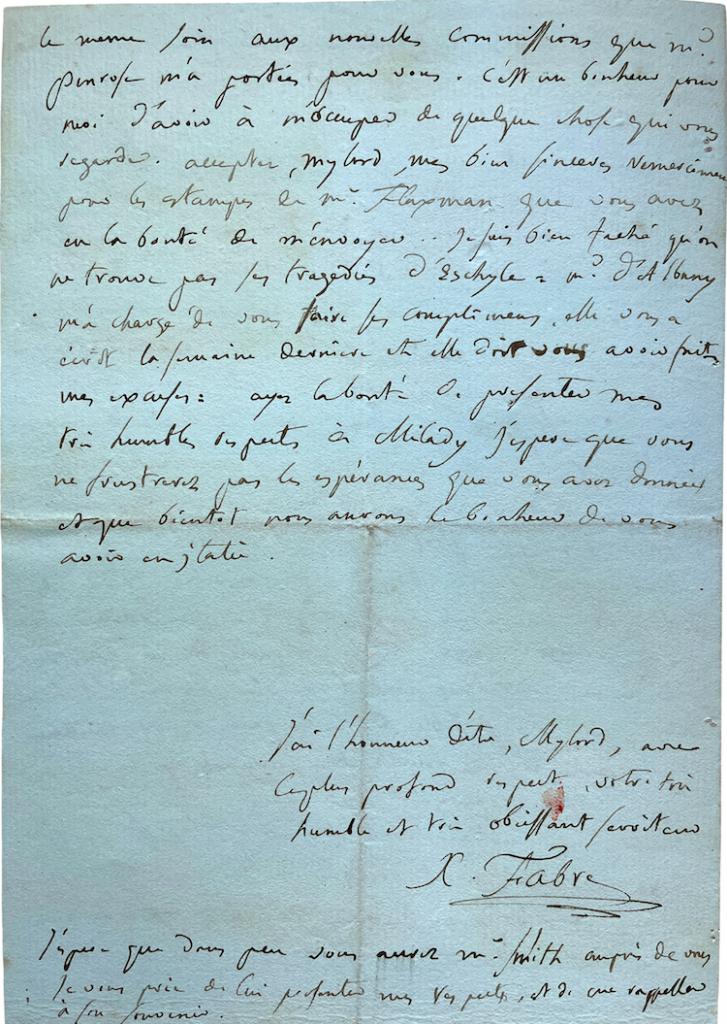 le meme soin aux nouvelles commissions que mr
penrose m'a portées pour vous. C'est un bonheur pour
moi d'avoir à m'occuper de quelque chose qui vous
regarde. acceptez, mylord, mes bien sinceres remerciemens
pour les estampes de mr. Flaxman que vous avez
eu la bonté de m'envoyer.. Je suis bien faché qu'on
ne trouve pas ses tragedies d'Eschyle = me d'Albany
m'a chargé de vous faire ses complimens, elle vous a
écrit la semaine derniere et elle doit vous avoir fait
mes excuses = ayez la bonté de presenter mes
très humbles respects à Milady J'espere que vous
ne frustrerez pas les espérances que vous avez données
et que bientot nous aurons le bonheur de vous
avoir en jtalie.
J'ai l'honneur d'être, Mylord, avec
le plus profond respect, votre très
humble et très obeissant serviteur
X. Fabre
J'espere que dans peu vous aurez mr. Smith auprès de vous
Je vous prie de lui presenter mes respects, et de me rappeller
à son souvenir.